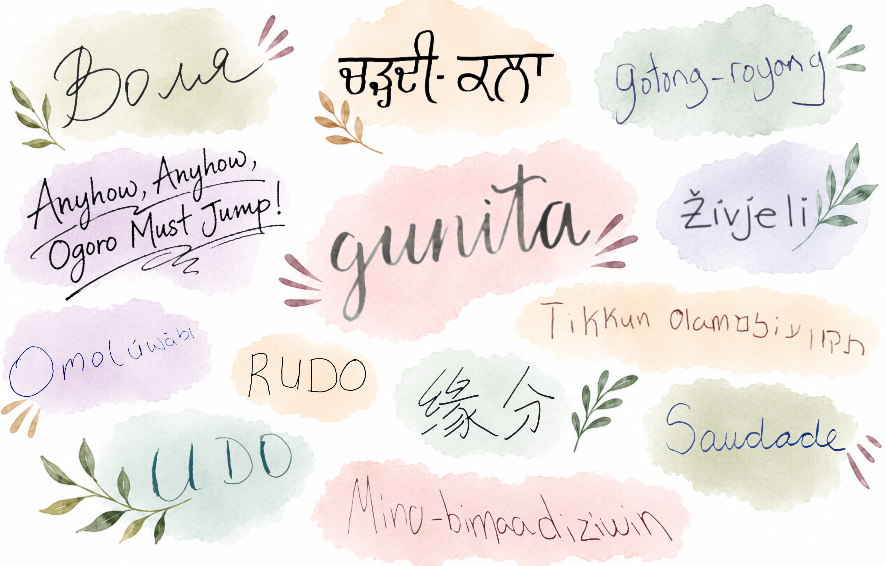 Воля
ਚੜ੍ਹਦੀ-ਕਲਾ
gotong-royong
Anyhow, Anyhow,
Ogoro Must Jump!
gunita
Živjeli
Tikkun Olam תקון עולם
Omolúwàbí
RUDO
缘分
Saudade
UDO
Mino-bimaadiziwin